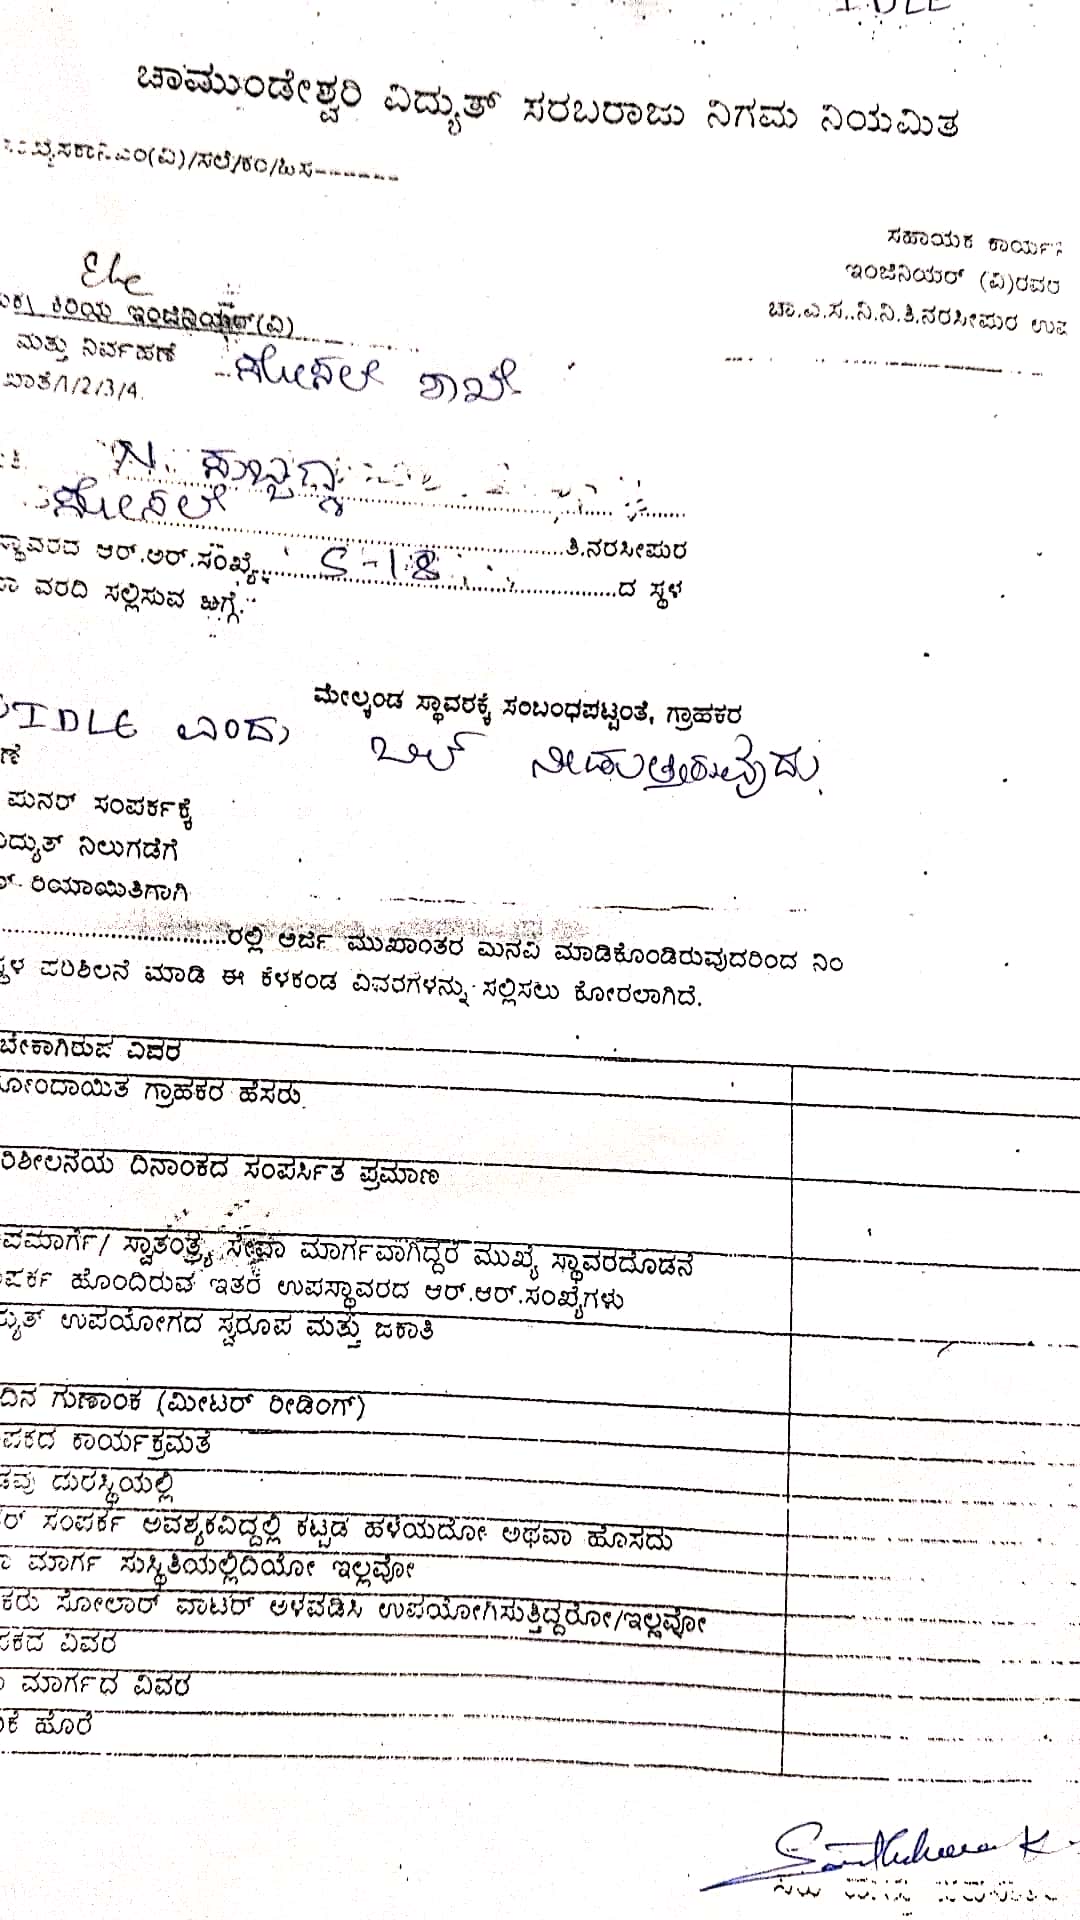 IDLE
ಚಾಮುಂಡೇಶ್ವರಿ ವಿದ್ಯುತ್ ಸರಬರಾಜು ನಿಗಮ ನಿಯಮಿತ
ಸಹಾಯಕ ಕಾರ್ಯ
ಇಂಜಿನಿಯರ್ (ವಿ)ರವರ
ಚಾ.ವಿ.ಸ..ನಿ.ನಿ.ತಿ.ನರಸೀಪುರ ಉಪ
ಕಿರಿಯ ಇಂಜಿನಿಯರ್(ವಿ)
ಮತ್ತು ನಿರ್ವಹಣೆ
ಶಾಖೆ/1/2/3/4.
ಶಾಖೆ
N. ಸುಬ್ಬಣ್ಣ
ತಿ.ನರಸೀಪುರ
ಸ್ಥಾವರದ ಆರ್.ಆರ್.ಸಂಖ್ಯೆ S-18 ದ ಸ್ಥಳ
ವರದಿ ಸಲ್ಲಿಸುವ ಬಗ್ಗೆ.
ಮೇಲ್ಕಂಡ ಸ್ಥಾವರಕ್ಕೆ ಸಂಬಂಧಪಟ್ಟಂತೆ, ಗ್ರಾಹಕರ
IDLE ಎಂದು ಬಿಲ್ ನೀಡುತ್ತಿರುವುದು.
ಪುನರ್ ಸಂಪರ್ಕಕ್ಕೆ
ವಿದ್ಯುತ್ ನಿಲುಗಡೆಗೆ
ರಿಯಾಯಿತಿಗಾಗಿ
ರಲ್ಲಿ ಅರ್ಜಿ ಮುಖಾಂತರ ಮನವಿ ಮಾಡಿಕೊಂಡಿರುವುದರಿಂದ ನಿಂ
ಸ್ಥಳ ಪರಿಶೀಲನೆ ಮಾಡಿ ಈ ಕೆಳಕಂಡ ವಿವರಗಳನ್ನು ಸಲ್ಲಿಸಲು ಕೋರಲಾಗಿದೆ.
ಬೇಕಾಗಿರುವ ವಿವರ
ನೋಂದಾಯಿತ ಗ್ರಾಹಕರ ಹೆಸರು
ರಿಶೀಲನೆಯ ದಿನಾಂಕದ ಸಂಪರ್ಸಿತ ಪ್ರಮಾಣ
ಪಮಾರ್ಗ/ ಸ್ವಾತಂತ್ರ್ಯ ಸೇವಾ ಮಾರ್ಗವಾಗಿದ್ದರೆ ಮುಖ್ಯ ಸ್ಥಾವರದೊಡನೆ
ಪರ್ಕ ಹೊಂದಿರುವ ಇತರೆ ಉಪಸ್ಥಾವರದ ಆರ್.ಆರ್.ಸಂಖ್ಯೆಗಳು
ದ್ಯುತ್ ಉಪಯೋಗದ ಸ್ವರೂಪ ಮತ್ತು ಜಕಾತಿ
ದಿನ ಗುಣಾಂಕ (ಮೀಟರ್ ರೀಡಿಂಗ್)
ಪಕದ ಕಾರ್ಯಕ್ರಮತೆ
ದುರಸ್ಥಿಯಲ್ಲಿ
ರ್ ಸಂಪರ್ಕ ಅವಶ್ಯಕವಿದ್ದಲ್ಲಿ ಕಟ್ಟಡ ಹಳೆಯದೋ ಅಥವಾ ಹೊಸದು
ಮಾರ್ಗ ಸುಸ್ಥಿತಿಯಲ್ಲಿದಿಯೋ ಇಲ್ಲವೋ
ಕರು ಸೋಲಾರ್ ವಾಟರ್ ಅಳವಡಿಸಿ ಉಪಯೋಗಿಸುತ್ತಿದ್ದರೋ/ಇಲ್ಲವೋ
ಪಕದ ವಿವರ
ಮಾರ್ಗದ ವಿವರ
ಹೊರೆ